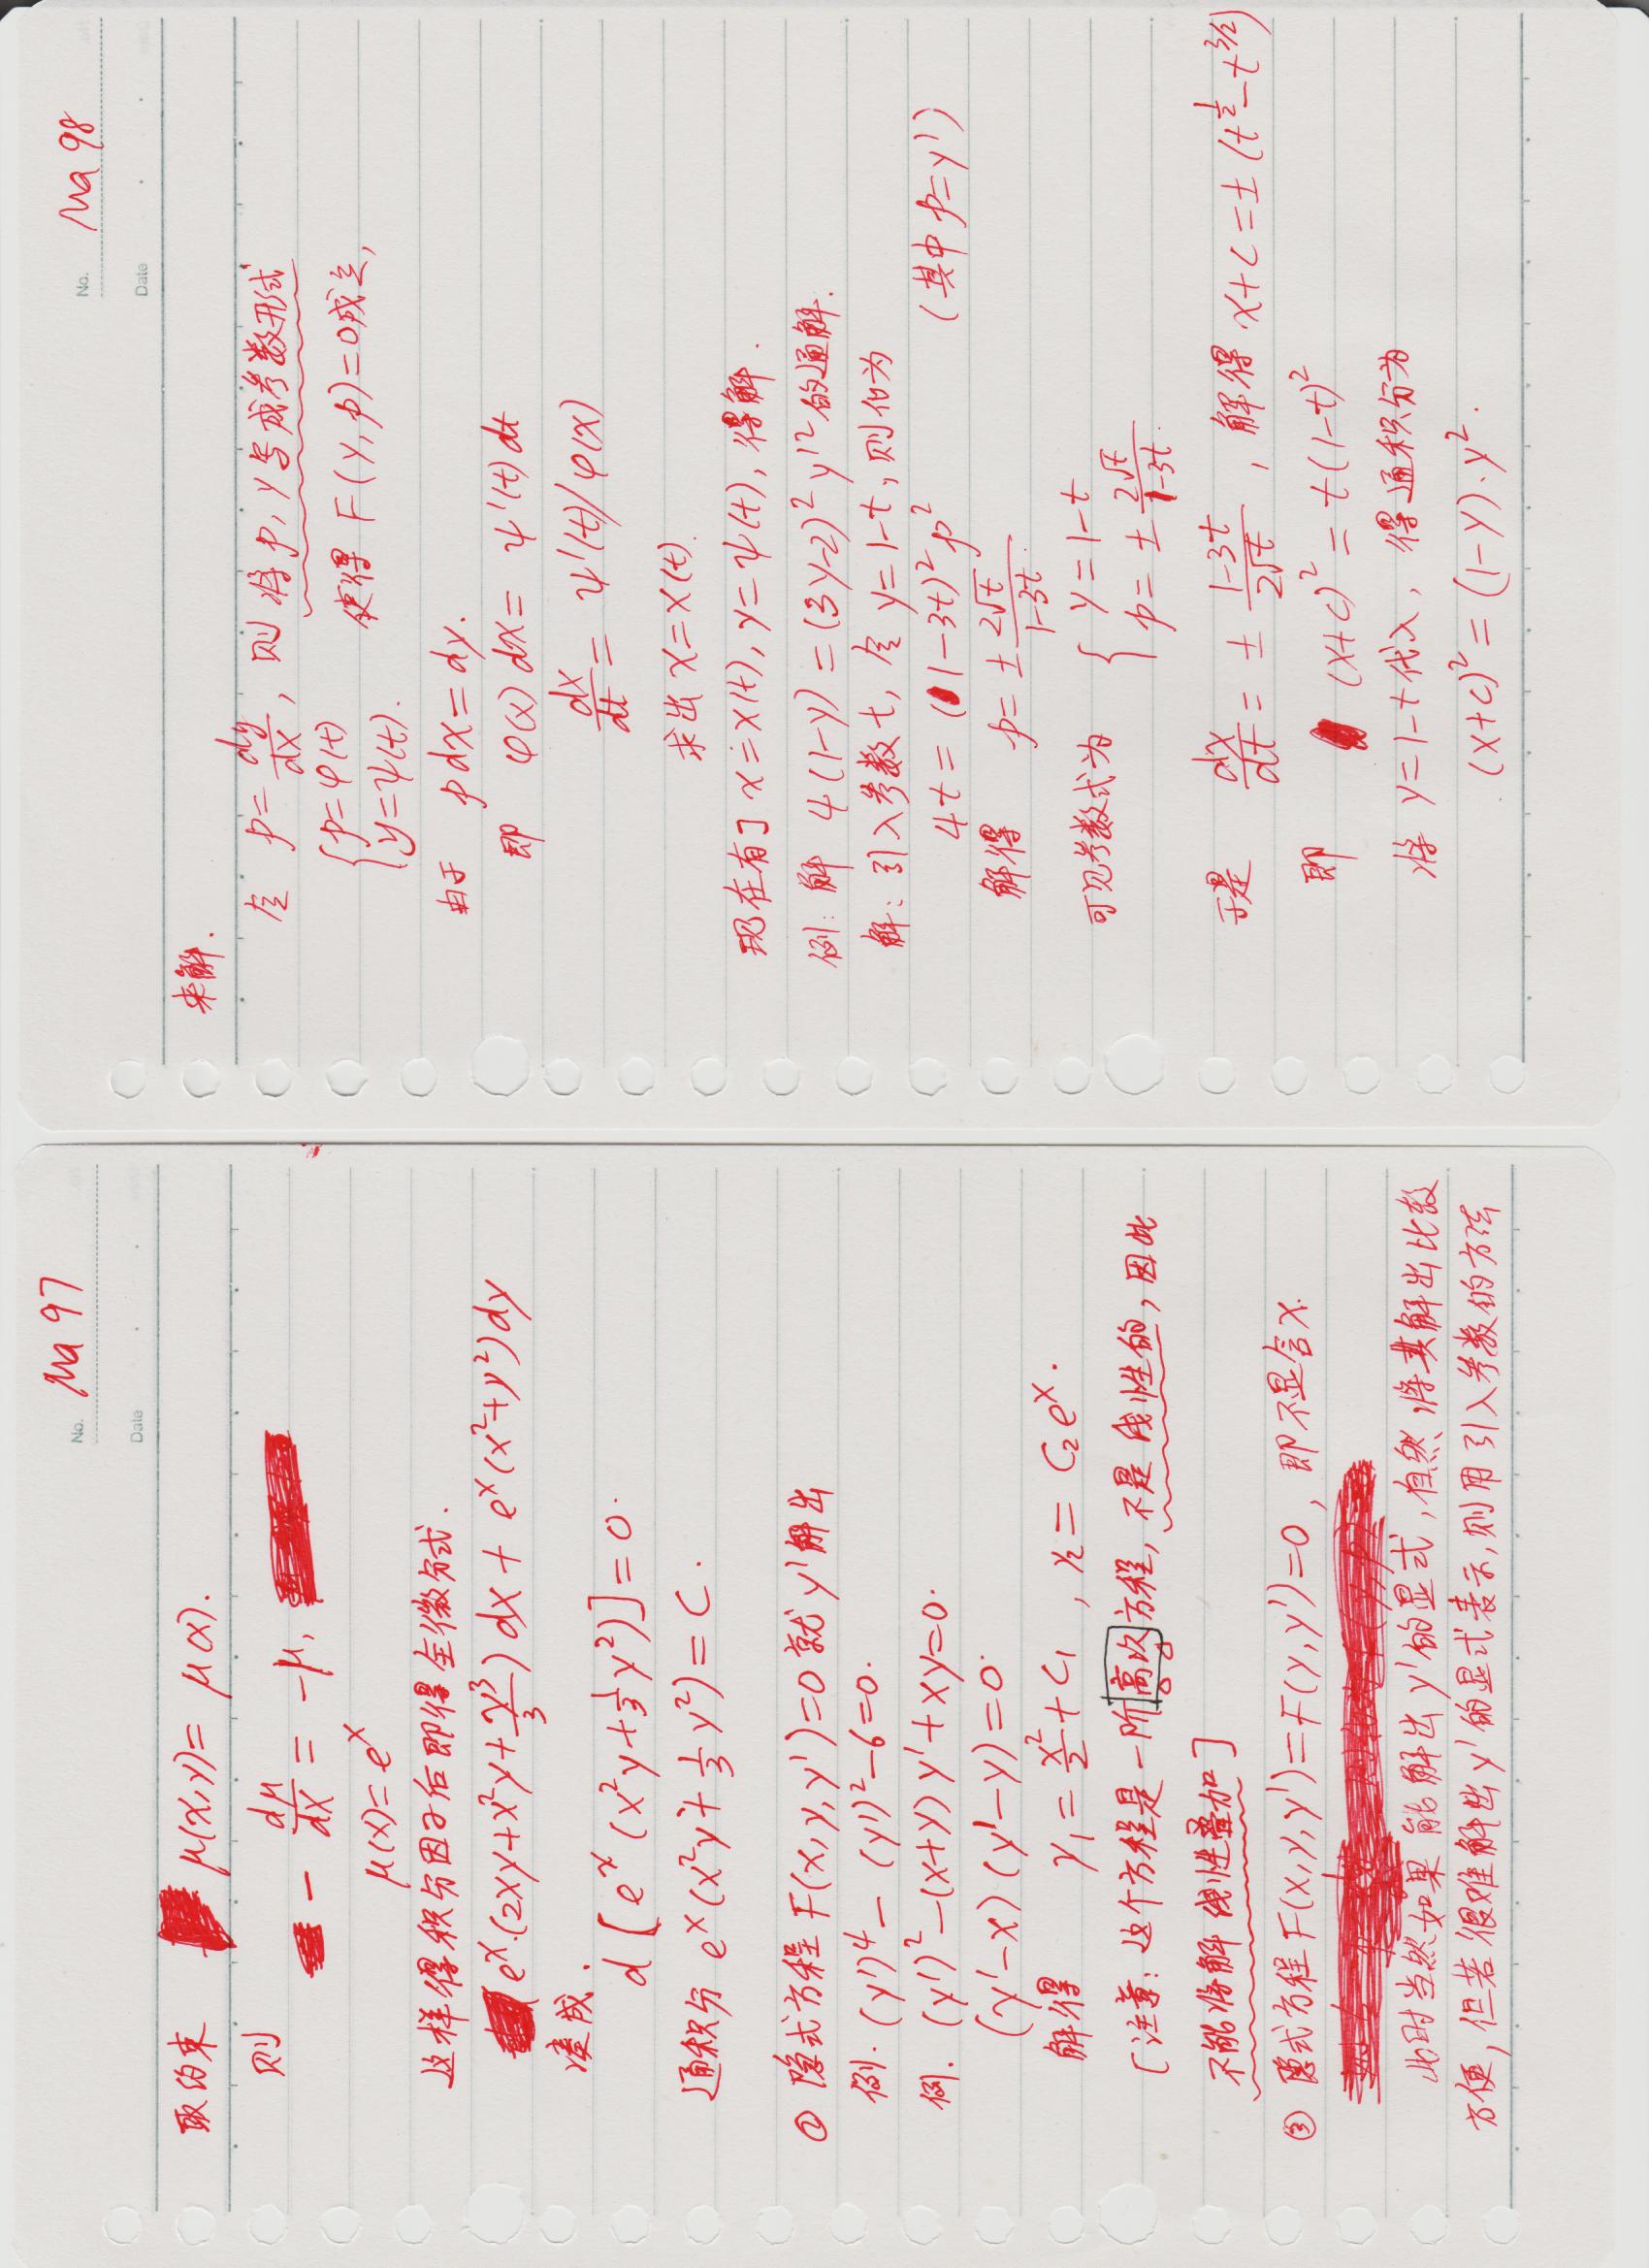 No. Ma 97
Date
取约束 μ(x,y)= μ(x).
则
- dμ/dx = -μ,
μ(x)= e^x
这样得积分因子后即得全微分式.
e^x·(2xy+x²y+x³/3) dx + e^x(x²+y²)dy
凑成.
d [e^x (x²y+1/3 y²)]=0.
通积分 e^x(x²y+1/3 y²)= C.
② 隐式方程 F(x,y,y')=0 就 y' 解出
例. (y')⁴- (y')²-6=0.
例. (y')²-(x+y) y'+xy=0.
(y'-x) (y'-y)=0.
解得 y₁= x²/2+C₁ , y₂= C₂e^x.
[注意: 这个方程是一阶高次方程, 不是线性的, 因此
不能将解线性叠加]
③ 隐式方程 F(x,y,y')=F(y,y')=0, 即不显含x.
此时当然如果能解出 y'的显式, 自然将其解出比较
方便, 但若很难解出y'的显式表示, 则用引入参数的方法
No. Ma 98
Date
来解.
令 p= dy/dx, 则将p, y写成参数形式
{p=φ(t)
y=ψ(t). 使得 F(y,p)=0成立,
由于 pdx=dy.
即 φ(x) dx= ψ'(t) dt
dx/dt = ψ'(t)/φ(x)
求出 x=x(t).
现在有了 x=x(t), y=ψ(t), 得解.
例: 解 4(1-y)=(3y-2)²y'² 的通解.
解: 引入参数t, 令 y=1-t, 则化为
4t= (1-3t)²p² (其中 p=y')
解得 p= ± 2√t/(1-3t).
可见参数式为 { y=1-t
p= ± 2√t/(1-3t).
于是 dx/dt= ± (1-3t)/(2√t) , 解得 x+c=±(t^(1/2)-t^(3/2))
即 (x+c)²= t(1-t)²
将 y=1-t代入, 得通积分为
(x+c)²= (1-y)·y².